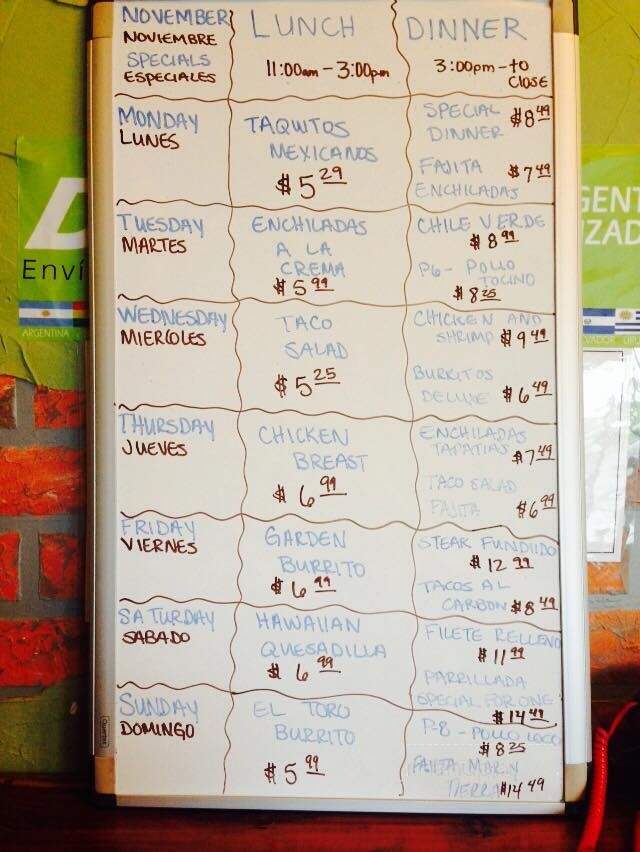 NOVEMBER
NOVIEMBRE
SPECIALS
ESPECIALES
LUNCH
11:00am - 3:00pm
DINNER
3:00pm - to
CLOSE
MONDAY
LUNES
TAQUITOS
MEXICANOS
$5 29
SPECIAL $8 49
DINNER
FAJITA $7 49
ENCHILADAS
TUESDAY
MARTES
ENCHILADAS
A LA
CREMA
$5 99
CHILE VERDE
$8 99
P6 - POLLO
TOCINO
$8 25
WEDNESDAY
MIERCOLES
TACO
SALAD
$5 25
CHICKEN AND
SHRIMP $9 49
BURRITOS
DELUXE $6 49
THURSDAY
JUEVES
CHICKEN
BREAST
$6 99
ENCHILADAS
TAPATIAS $7 49
TACO SALAD
FAJITA $6 99
FRIDAY
VIERNES
GARDEN
BURRITO
$6 99
STEAK FUNDIIDO
$12 99
TACOS AL
CARBON $8 49
SATURDAY
SABADO
HAWAIIAN
QUESADILLA
$6 99
FILETE RELLENO
$11 99
PARRILLADA
SPECIAL FOR ONE
$14 49
SUNDAY
DOMINGO
EL TORO
BURRITO
$5 99
P-8 - POLLO LOCO
$8 25
FAJITA MAR Y
TIERRA $14 49
Enví
ARGENTINA
GENT
IZAD
VADOR
URU
Quartet